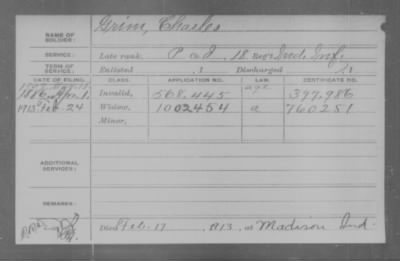 NAME OF SOLDIER: Grim, Charles
SERVICE: Late rank, P Co. I, 18 Reg't Ind. Inf.
TERM OF SERVICE: Enlisted , 1 Discharged , 1
DATE OF FILING. CLASS. APPLICATION NO. LAW. CERTIFICATE NO.
1886 Apr. 1. Invalid, 568,445 age 397,986
1913 Feb. 24 Widow, 1002454 a 760251
Minor,
ADDITIONAL SERVICES:
REMARKS:
Died Feb. 17, 1913, at Madison Ind.